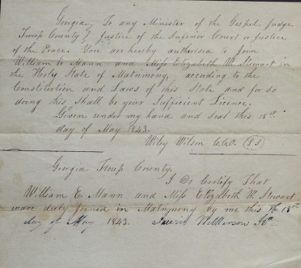 Georgia, To any Minister of the Gospel, Judge
Troup County } Justice of the Superior Court or Justice
of the Peace. You are hereby authorised to Join
William E Mann and Miss Elizabeth M. Stewart in
the Holy State of Matrimony, according to the
Constitution and Laws of this State and for so
doing this Shall be your Sufficient Licence.
Given under my hand and Seal this 15th
day of May 1843.
Wiley Wilson
Georgia Troup County.
I Do Certify That
William E. Mann and Miss Elizabeth M. Stewart
were duly Joined in Matrimony by me this 18th
day of May 1843. Wilkerson